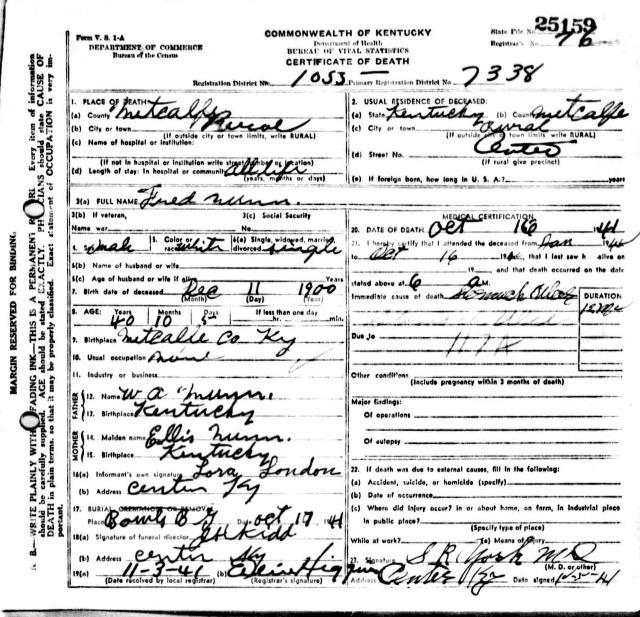 Form V. S. 1-A
DEPARTMENT OF COMMERCE
Bureau of the Census
COMMONWEALTH OF KENTUCKY
Department of Health
BUREAU OF VITAL STATISTICS
CERTIFICATE OF DEATH
State File No. 25159
Registrar's No. 76
Registration District No. 1055 Primary Registration District No. 7338
MARGIN RESERVED FOR BINDING
1. PLACE OF DEATH
(a) County Metcalfe
(b) City or town Rural
(If outside city or town limits, write RURAL)
(c) Name of hospital or institution:
(If not in hospital or institution write street number or location)
(d) Length of stay: In hospital or community all life
(years, months or days)
2. USUAL RESIDENCE OF DECEASED:
(a) State Kentucky (b) County Metcalfe
(c) City or town Rural
(If outside city or town limits, write RURAL)
Center
(d) Street No.
(If rural give precinct)
(e) If foreign born, how long in U. S. A.? years
3(a) FULL NAME Fred Nunn.
3(b) If veteran,
Name war
3(c) Social Security
No.
4. Sex male 5. Color or race white 6(a) Single, widowed, married, divorced Single
6(b) Name of husband or wife
6(c) Age of husband or wife if alive Years
7. Birth date of deceased Dec 11 1900
(Month) (Day) (Year)
8. AGE: Years Months Days If less than one day
40 10 5 hr. min.
9. Birthplace Metcalfe Co Ky
10. Usual occupation none
11. Industry or business
FATHER
12. Name W A Nunn.
13. Birthplace Kentucky
MOTHER
14. Maiden name Ellis Nunn.
15. Birthplace Kentucky
16(a) Informant's own signature Lora London
(b) Address Center Ky
17. BURIAL, CREMATION OR REMOVAL
Place Bowls B G Date Oct 17 1941
18(a) Signature of funeral director J H Kidd
(b) Address Center Ky
19(a) 11-3-41 (b)
(Date received by local registrar) (Registrar's signature)
MEDICAL CERTIFICATION
20. DATE OF DEATH Oct 16 1941
21. I hereby certify that I attended the deceased from Jan 1941
to Oct 16 194, that I last saw h alive on
19 and that death occurred on the date
stated above at 6 a M.
Immediate cause of death
DURATION
Due to
Other conditions
(Include pregnancy within 3 months of death)
Major findings:
Of operations
Of autopsy
22. If death was due to external causes, fill in the following:
(a) Accident, suicide, or homicide (specify)
(b) Date of occurrence
(c) Where did injury occur? in or about home, on farm, in industrial place
in public place?
(Specify type of place)
While at work? (e) Means of injury
23. Signature S R York M D
(M. D. or other)
Address Center Ky Date signed